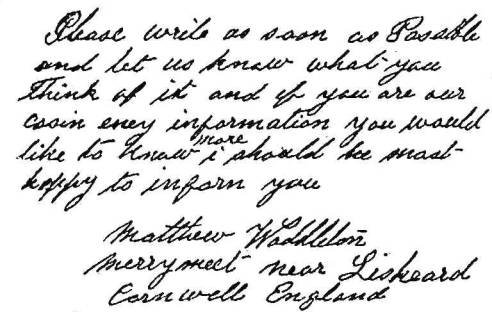 Please write as soon as Posable
and let us know what you
think of it and if you are our
cosin eney information you would
like to know more i should be most
happy to inform you
Matthew Waddleton
merrymeet near Liskeard
Cornwell England